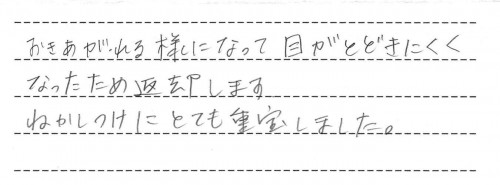 おきあがれる様になって目がとどきにくく
なったため返却します
ねかしつけにとても重宝しました。